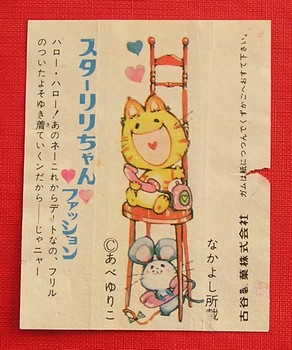 ガムは紙につつんでくずかごへおすて下さい。
古谷製菓株式会社
なかよし所載
スターリリちゃん
ファッション
©あべゆりこ
ハロー・ハロー！あのネーこれからデートなの、フリル
のついたよそゆき着ていくンだから――じゃニャー